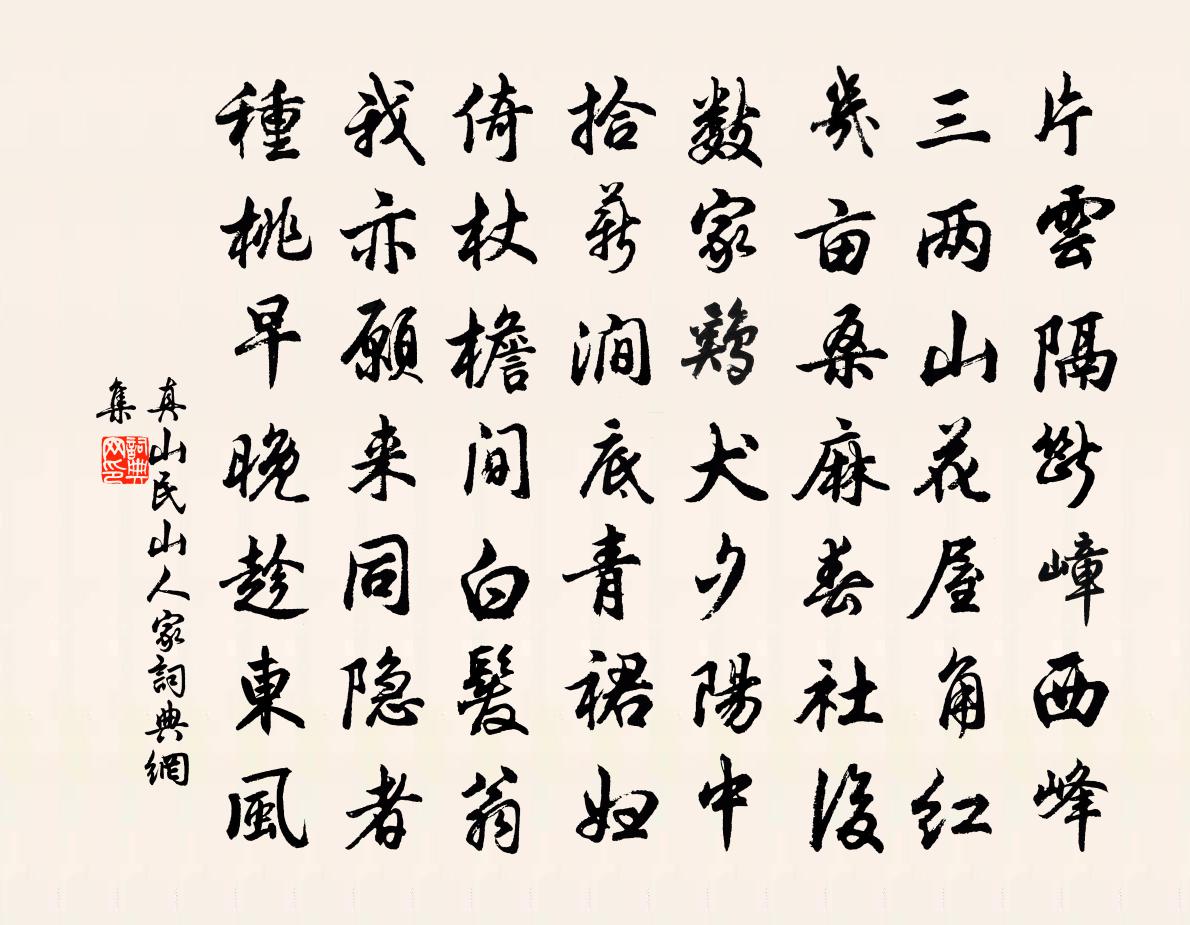 片雲隔斷嶂西峰
三两山花屋角红
幾亩桑麻春社後
数家鷄犬夕陽中
拾薪澗底青裙妇
倚杖檐间白髮翁
我亦願来同隐者
種桃早晚趁東風
真山民山人家詞典網
集
詞典
网印